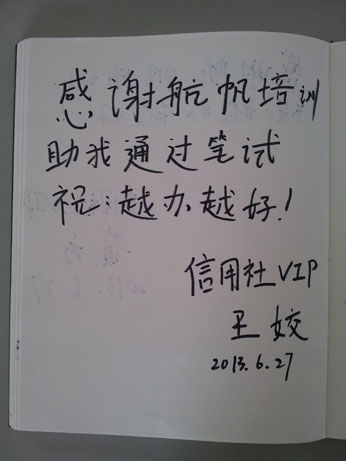 感谢航帆培训
助我通过笔试
祝：越办越好！
信用社VIP
王姣
2013.6.27